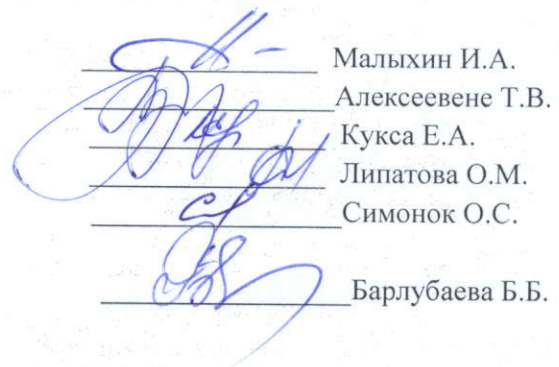 Малыхин И.А.
Алексеевене Т.В.
Кукса Е.А.
Липатова О.М.
Симонок О.С.
Барлубаева Б.Б.